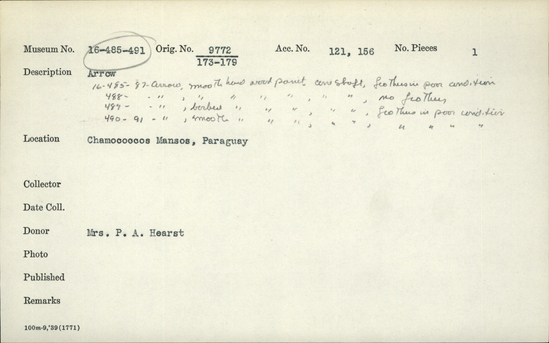 Museum No. 16-485-491 Orig. No. 9772 Acc. No. 121, 156 No. Pieces 1
173-179
Description Arrow
16-485-87-Arrow, smooth hard wood point, cane shaft, feathers in poor condition
488- - " , " " " " , " " , no feathers
489- - " , barbed " " " , " " , feathers in poor condition
490-91 - " , smooth " " " , " " , " " " "
Location Chamocococos Mansos, Paraguay
Collector
Date Coll.
Donor Mrs. P. A. Hearst
Photo
Published
Remarks
100m-9,'39(1771)